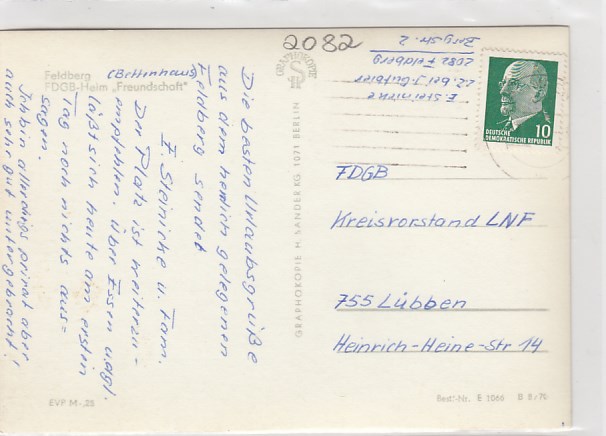 2082
Feldberg
(Bettenhaus)
FDGB-Heim „Freundschaft"
Die besten Urlaubsgrüße
aus dem herrlich gelegenen
Feldberg sendet
E. Steinicke u. Fam.
Der Platz ist weiterzu-
empfehlen. Über Essen u.dgl.
läßt sich heute am ersten
Tag noch nichts aus-
sagen.
Ich bin allerdings privat aber
auch sehr gut untergebracht!
EVP M -,25
GRAPHOKOPIE
GRAPHOKOPIE H. SANDER KG 1071 BERLIN
E. Steinicke
z.Z. bei J. Gutbier
2082 Feldberg
Bergstr. 2
10
DEUTSCHE
DEMOKRATISCHE REPUBLIK
FDGB
Kreisvorstand LNF
755 Lübben
Heinrich-Heine-Str 14
Best.-Nr. E 1066 B 8/70